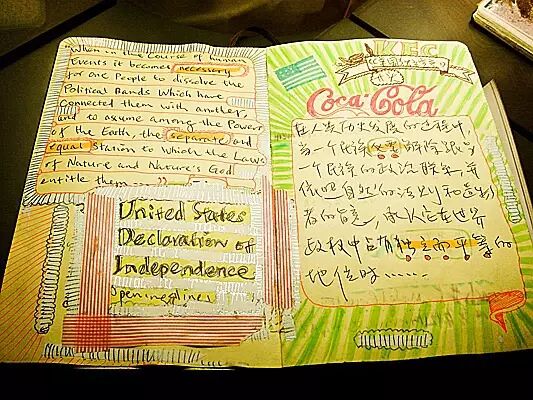 "When in the Course of human
Events it becomes necessary
for one People to dissolve the
Political Bands Which have
Connected them with another,
and to assume among the Powers
of the Earth, the separate and
equal Station to Which the Laws
of Nature and Nature's God
entitle them
United States
Declaration of
Independence
Opening lines
KFC
《美国独立宣言》
Coca-Cola
在人类历史发展的过程中,
当一个民族必须解除跟另
一个民族的政治联系,并
依照自然的法则和造物
者的旨意,承认它在世界
政权中占有独立而平等的
地位时……